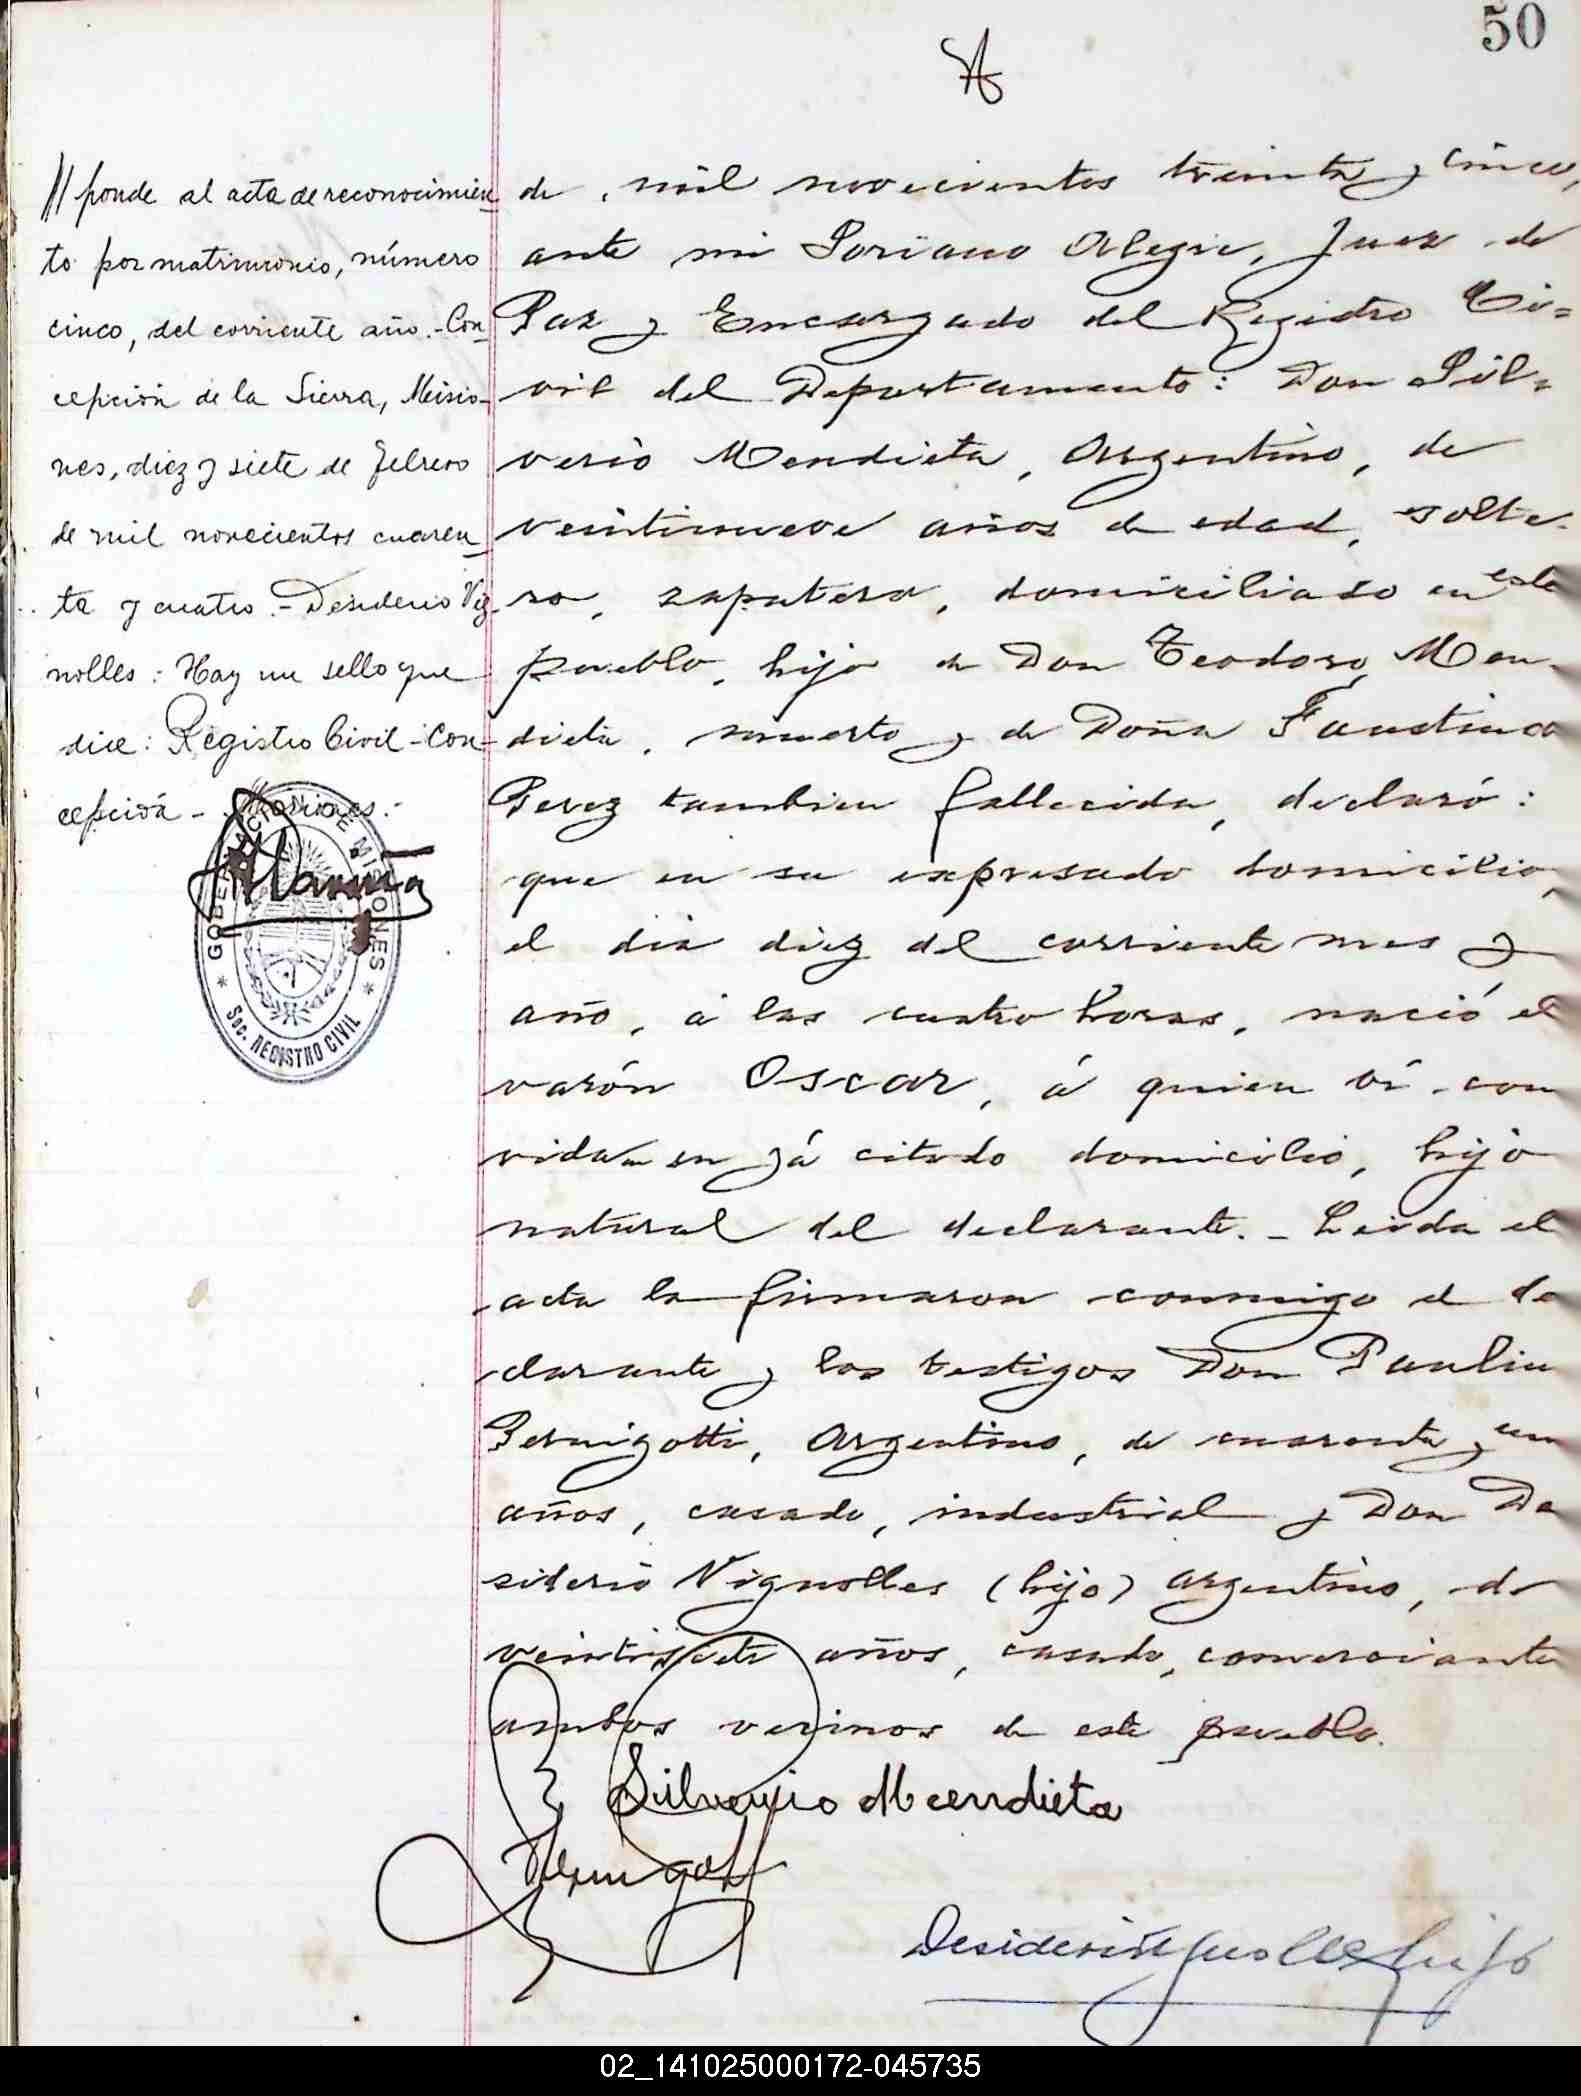 50
// ponde al acta de reconocimien-
to por matrimonio, número
cinco, del corriente año.- Con-
cepción de la Sierra, Misio-
nes, diez y siete de febrero
de mil novecientos cuaren-
ta y cuatro.- Desiderio Vig-
nolles: Hay un sello que
dice: Registro Civil - Con-
cepción - Misiones.-
GOBERNACION DE MISIONES
Sec. REGISTRO CIVIL
de mil novecientos treinta y cinco,
ante mi Soriano Alegre, Juez de
Paz y Encargado del Registro Ci=
vil del Departamento: Don Sil=
verio Mendieta, Argentino, de
veintinueve años de edad, solte-
ro, zapatero, domiciliado en este
pueblo, hijo de Don Teodoro Men-
dieta, muerto y de Doña Faustina
Perez tambien fallecida, declaró:
que en su expresado domicilio,
el dia diez del corriente mes y
año, á las cuatro horas, nació el
varón Oscar, á quien ví con
vida en yá citado domicilio, hijo
natural del declarante.- Leida el
acta la firmaron conmigo el de
clarante y los testigos Don Paulin
Pernigotti, Argentino, de cuarenta y un
años, casado, industrial y Don De
siderio Vignolles (hijo) argentino, de
veintisiete años, casado, comerciante
ambos vecinos de este pueblo.
Silverio Mendieta
Pernigotti
Desiderio Vignolles hijo
02_141025000172-045735